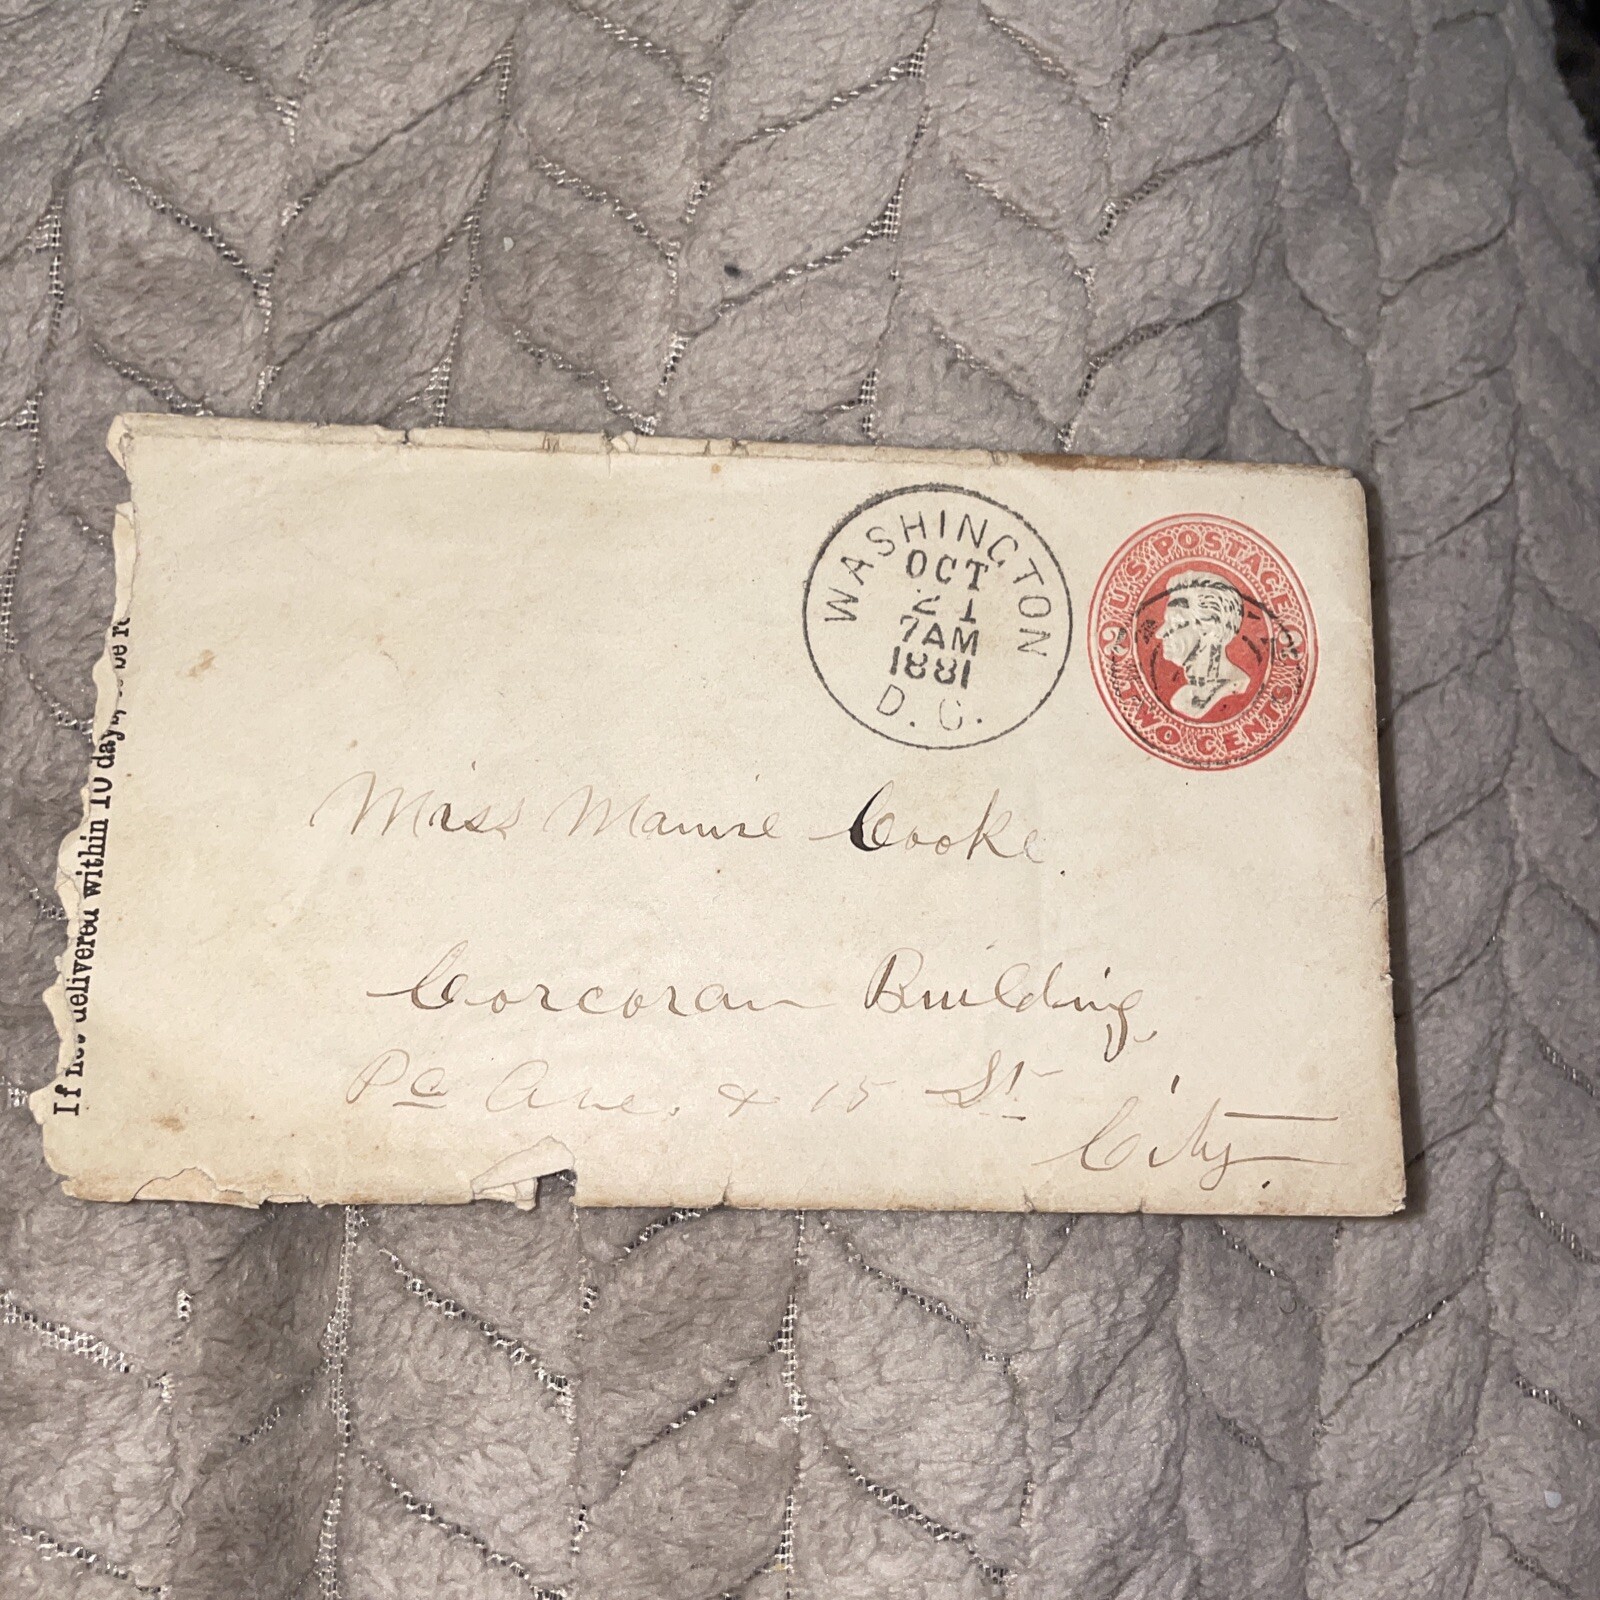 If not delivered within 10 days, to be re
WASHINGTON
OCT
21
7AM
1881
D.C.
U.S. POSTAGE
2 2
TWO CENTS
Miss Mamie Cooke.
Corcoran Building,
Pa Ave. & 15 St.
City.